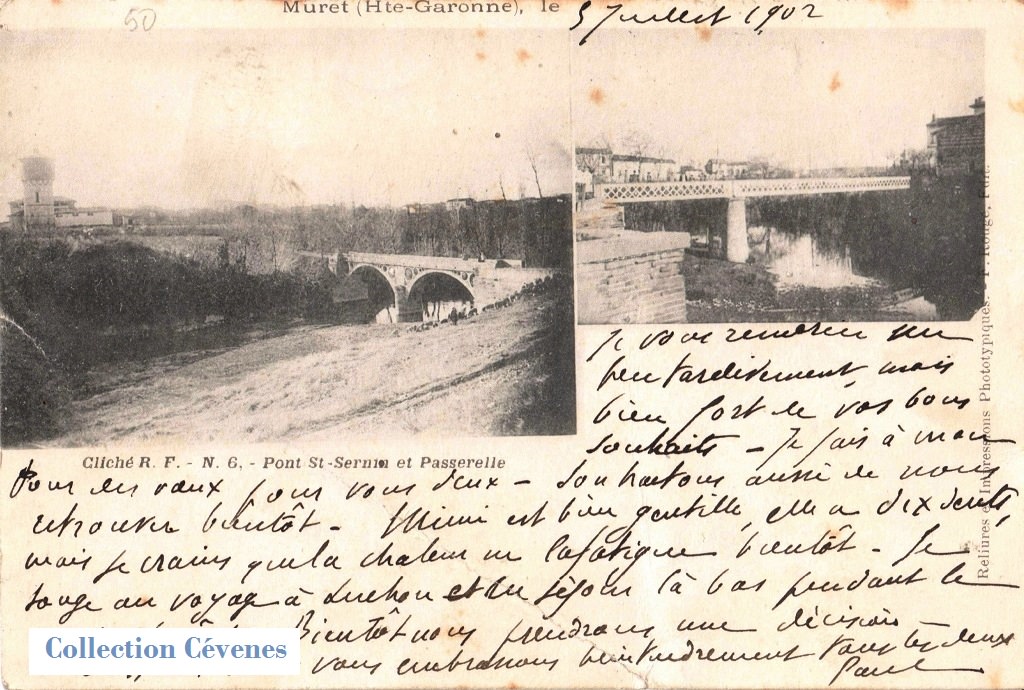 50
Muret (Hte-Garonne), le 5 Juillet 1902
Reliures et Impressions Phototypiques. - P. Rouge, Fds.
Cliché R. F. - N. 6. - Pont St-Sernin et Passerelle
Je vous remercie un
peu tardivement, mais
bien fort de vos bons
souhaits - Je fais à mon
tour des vœux pour vous deux - Souhaitons aussi de nous
retrouver bientôt - Mimi est bien gentille, elle a dix dents,
mais je crains que la chaleur ne la fatigue bientôt - Je
songe au voyage à Luchon et un séjour là bas pendant le
Bientôt nous prendrons une décision
vous embrassons bien tendrement tous les deux
Paul
Collection Cévenes